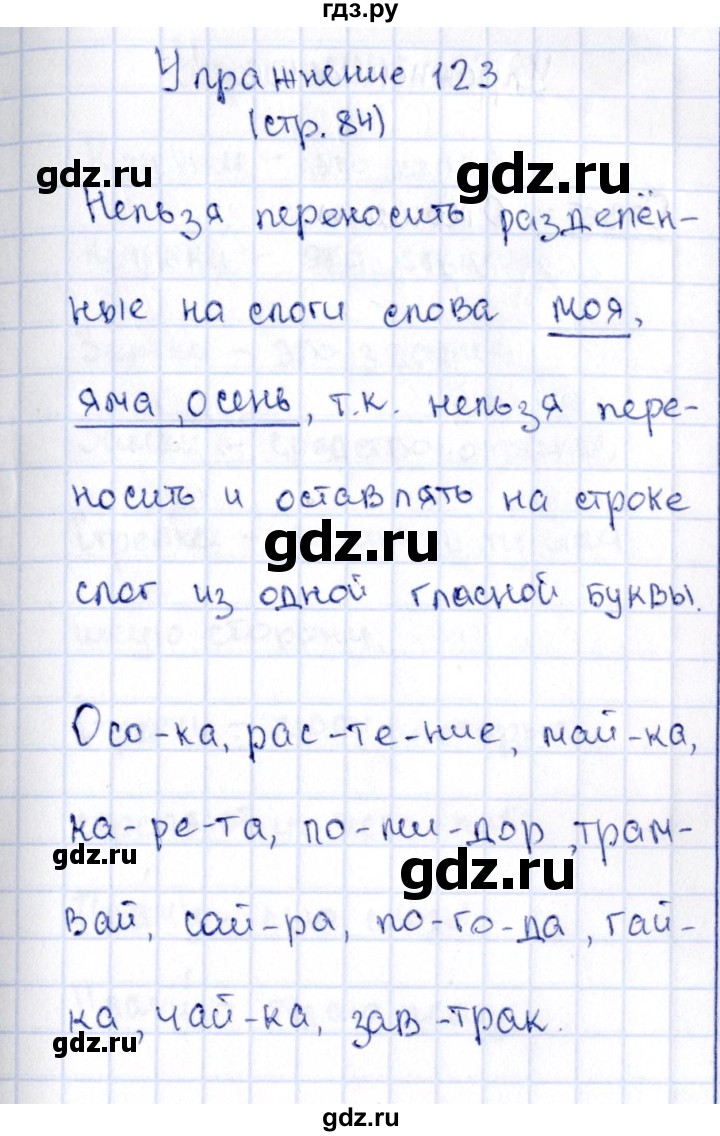 гдз.ру
Упражнение 123
(стр. 84)
gdz.ru
gdz.ru
Нельзя переносить разделён-
ные на слоги слова моя,
яма, осень, т.к. нельзя пере-
носить и оставлять на строке
gdz.ru
слог из одной гласной буквы.
Осо-ка, рас-те-ние, май-ка,
ка-ре-та, по-ми-дор, трам-
gdz.ru
gdz.ru
вай, сай-ра, по-го-да, гай-
ка, чай-ка, зав-трак.
gdz.ru
gdz.ru